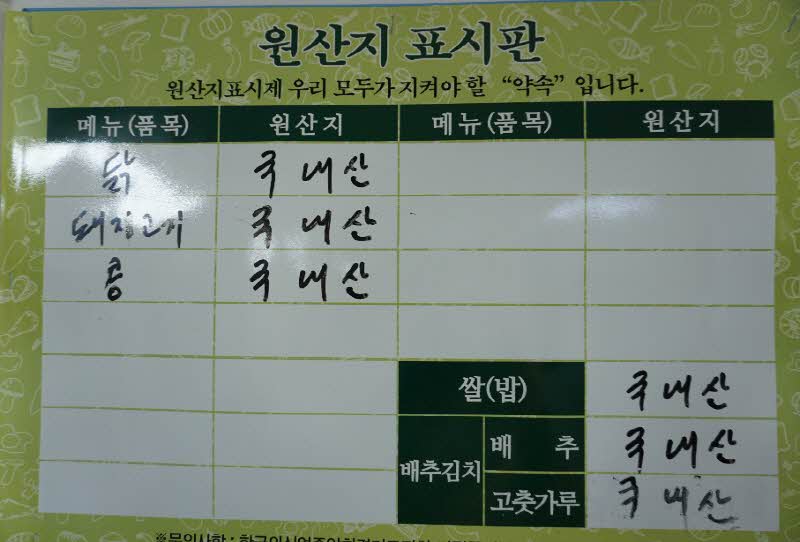 원산지 표시판
원산지표시제 우리 모두가 지켜야 할 “약속” 입니다.
메뉴(품목) 원산지 메뉴(품목) 원산지
닭 국내산
돼지고기 국내산
콩 국내산
쌀(밥) 국내산
배추김치 배 추 국내산
고춧가루 국내산
※문의사항 :